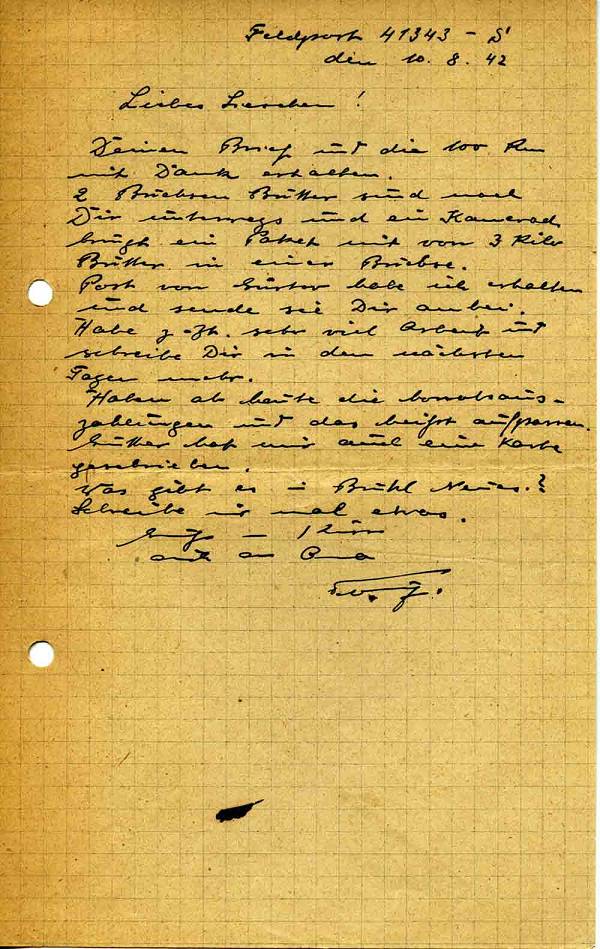 Feldpost 41343 - S
den 10. 8. 42
Liebes Lieschen!
Deinen Brief und die 100 Rm
mit Dank erhalten.
2 Büchsen Butter sind nach
Dir unterwegs und ein Kamerad
bringt ein Paket mit von 3 Kilo
Butter in einer Büchse.
Post von Gustav habe ich erhalten
und sende sie Dir anbei.
Habe z.Zt. sehr viel Arbeit und
schreibe Dir in den nächsten
Tagen mehr.
Haben ab heute die Monatsaus-
zahlungen und das heißt aufpassen.
hat mir auch eine Karte
geschrieben.
Was gibt es in Brühl Neues.?
Schreibe mir mal etwas.
Gruß
auch an Oma